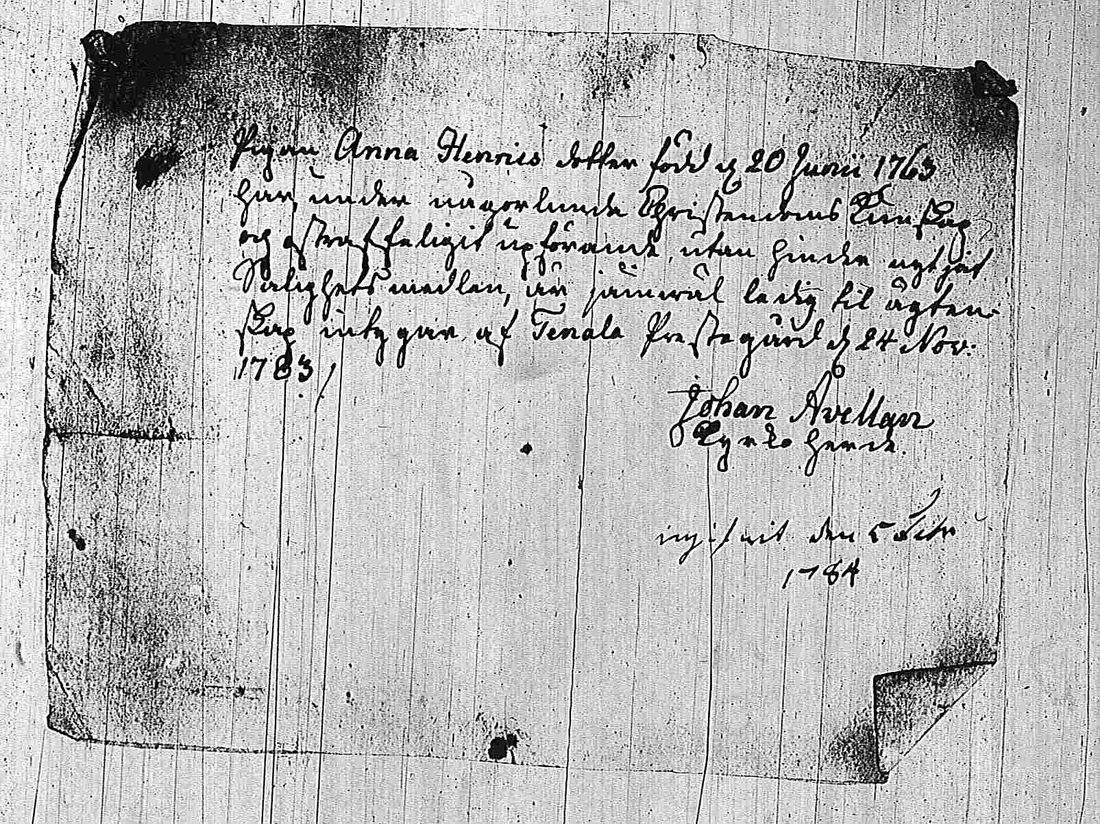 Pigan Anna Henrics dotter född d 20 Junii 1763
har, under någorlunda Christendoms Kunskap
och ostraffeligit upförande, utan hinder nytjat
Salighets medlen, är jämwäl ledig til ägten-
skap intygar af Tenala Prestegård d 24 Nov:
1783,
Johan Avellan
Kyrko herde.
den 5 Febr
1784